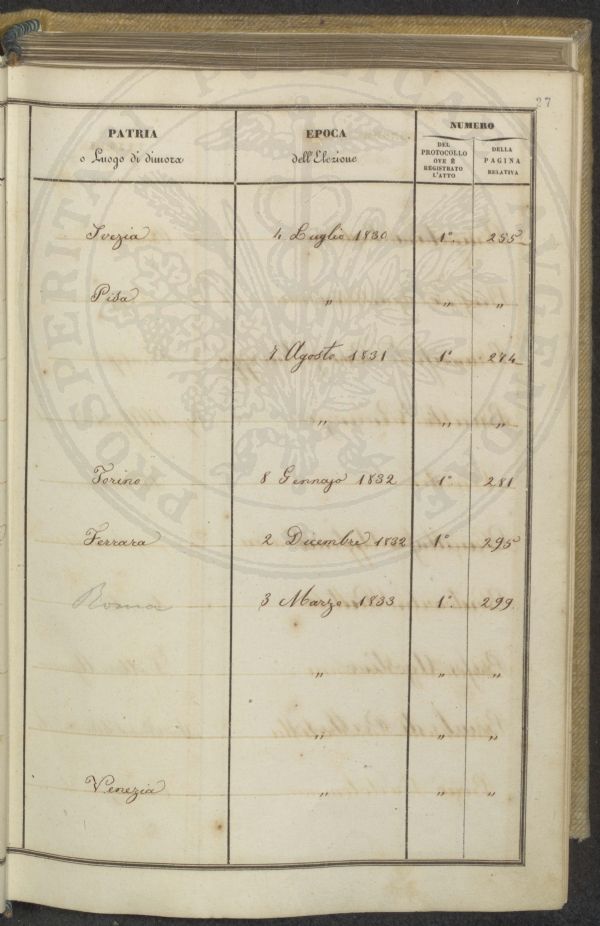 27
PATRIA
o Luogo di dimora
EPOCA
dell'Elezione
NUMERO
DEL
PROTOCOLLO
OVE È
REGISTRATO
L'ATTO
DELLA
PAGINA
RELATIVA
Svezia 4 Luglio 1830 1°. 255
Pisa " " "
7 Agosto 1831 1° 274
" " "
Torino 8 Gennajo 1832 1° 281
Ferrara 2 Dicembre 1832 1° 295
Roma 3 Marzo 1833 1°. 299
" " "
" " "
Venezia " " "
PROSPERITATI PUBLICAE AUGENDAE